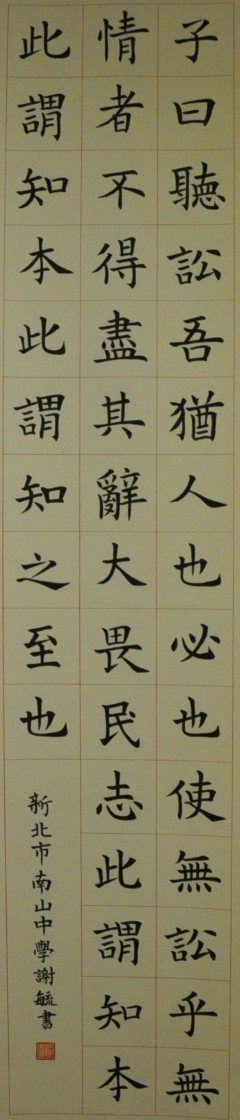 子曰聽訟吾猶人也必也使無訟乎無
情者不得盡其辭大畏民志此謂知本
此謂知本此謂知之至也
新北市南山中學謝毓書